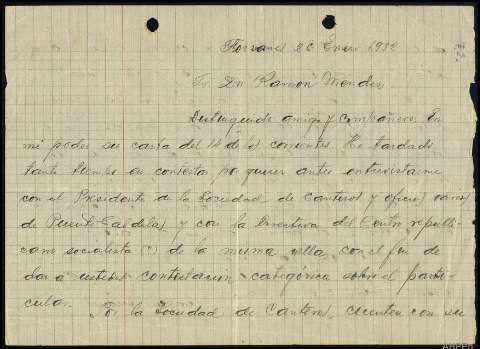 26 Enero 1932
Sr. Dn Ramon Mendez
Distinguido amigo y compañero. En
mi poder su carta del 14 de los corrientes. He tardado
tanto tiempo en contestar, por querer antes entrevistarme
con el Presidente de la Sociedad de Canteros y oficios varios
de Puente Caldelas y con la Directiva del Centro republi-
cano socialista (?) de la misma villa, con el fin de
dar a ustedes contestación categórica sobre el parti-
cular.
la Sociedad de Canteros, cuenten con su
AHPPO